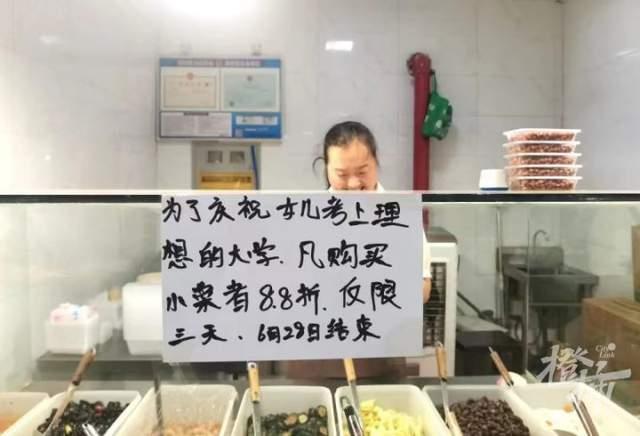 为了庆祝女儿考上理
想的大学.凡购买
小菜者8.8折.仅限
三天.6月29日结束
橙柿
City Link